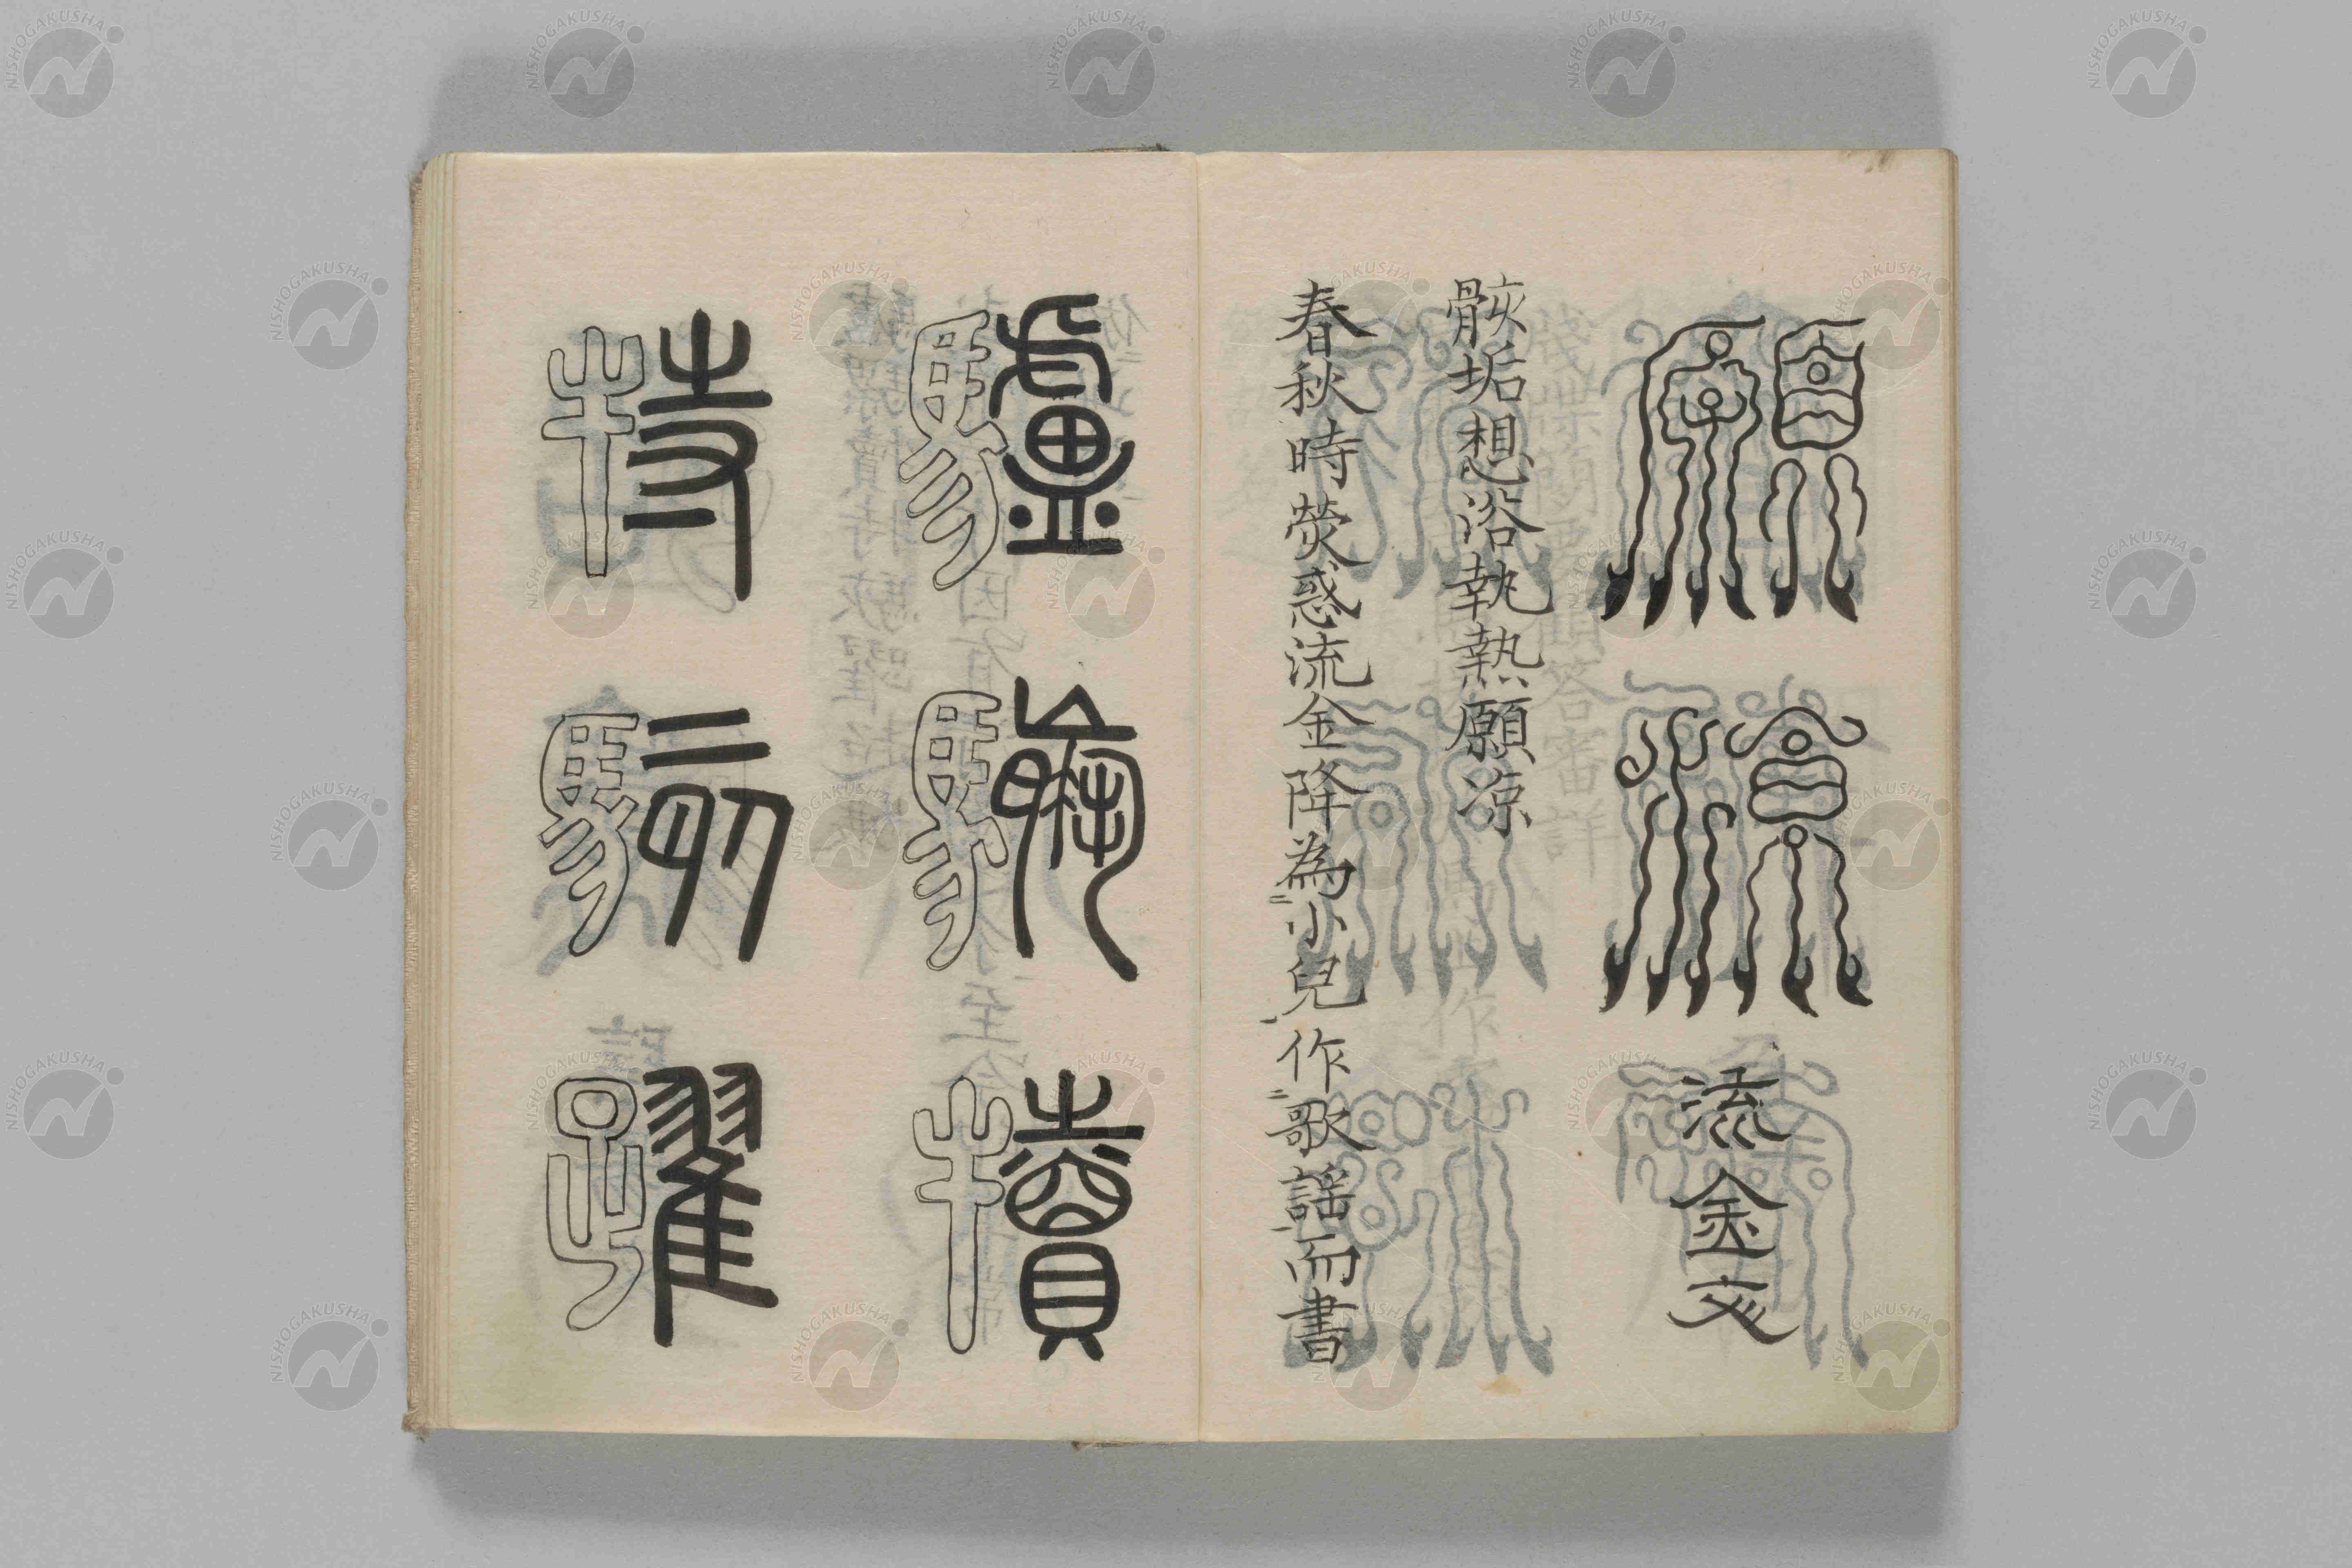 願涼
流金文
骸垢想浴執熱願凉
春秋時熒惑流金降為小兒作歌謡而書
驢騾犢
特駭躍
NISHOGAKUSHA